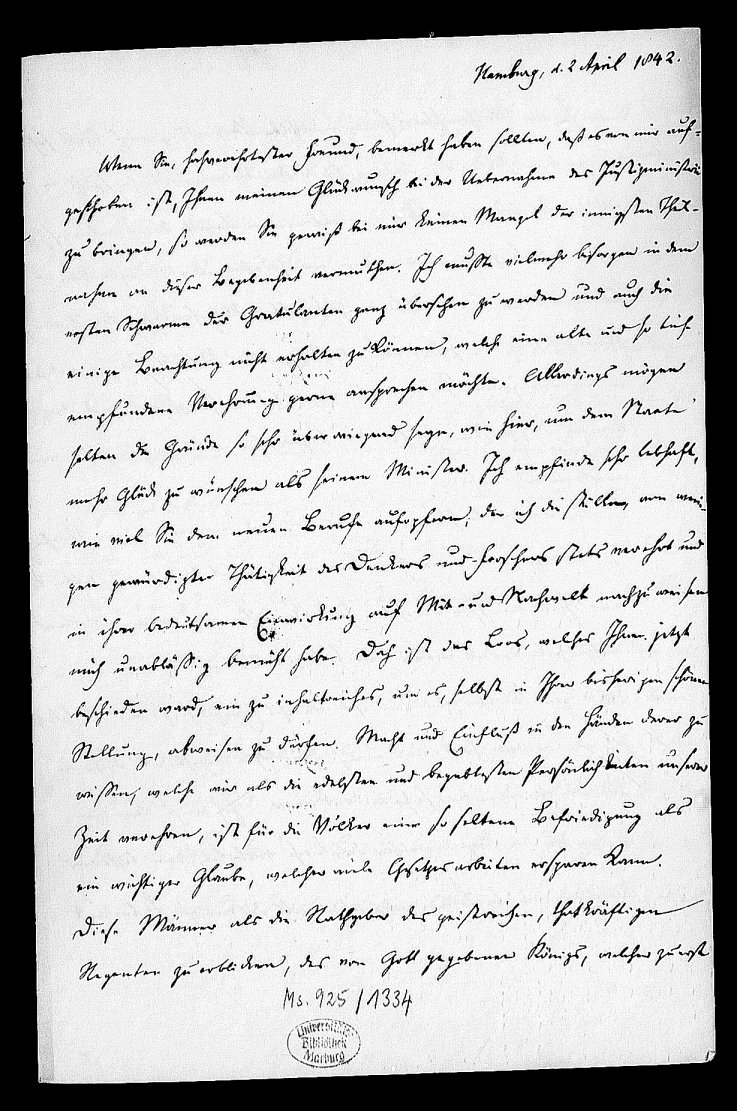 Hamburg, d. 2 April 1842.
Wenn Sie, hochverehrtester Freund, bemerkt haben sollten, daß es von mir auf-
geschoben ist, Ihnen meinen Glückwunsch bei der Uebernahme des Justizministerii
zu bringen, so werden Sie gewiß bei mir keinen Mangel der innigsten Theil-
nahme an dieser Begebenheit vermuthen. Ich mußte vielmehr besorgen in dem
ersten Schwarme der Gratulanten ganz übersehen zu werden und auch die
einige Beachtung nicht erhalten zu können, welche eine alte und so tief
empfundene Verehrung gerne ansprechen möchte. Allerdings mögen
selten die Gründe so sehr überwiegend seyn, wie hier, um dem Staate
mehr Glück zu wünschen als seinem Minister. Ich empfinde sehr lebhaft,
wie viel Sie dem neuen Berufe aufopfern, der ich die stille, von weni-
gen gewürdigte Thätigkeit des Denkers und Forschers stets verehrt und
in ihrer bedeutsamen Einwirkung auf Mit- und Nachwelt nachzuweisen
mich unabläßig bemüht habe. Doch ist das Loos, welches Ihnen jetzt
beschieden ward, ein zu inhaltreiches, um es, selbst in Ihrer bisherigen schönen
Stellung, abweisen zu dürfen. Macht und Einfluß in den Händen derer zu
wissen, welche wir als die edelsten und begabtesten Persönlichkeiten unserer
Zeit verehren, ist für die Völker eine so seltene Befriedigung als
ein wichtiger Glaube, welcher viele Gesetzesarbeiten ersparen kann.
Diese Männer als die Rathgeber des geistreichen, thatkräftigen
Regenten zu erblicken, des von Gott gegebenen Königs, welcher zuerst
Ms. 925/1334
Universitäts
Bibliothek
Marburg